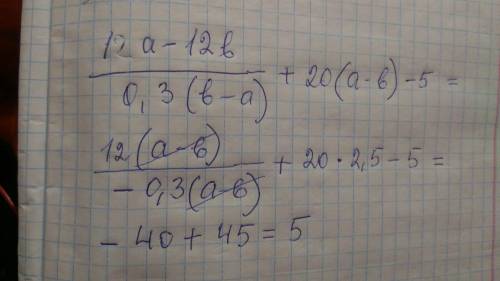 12a - 12b
0,3(b-a) + 20(a-b) - 5 =
12(a-b)
-0,3(a-b) + 20 · 2,5 - 5 =
- 40 + 45 = 5